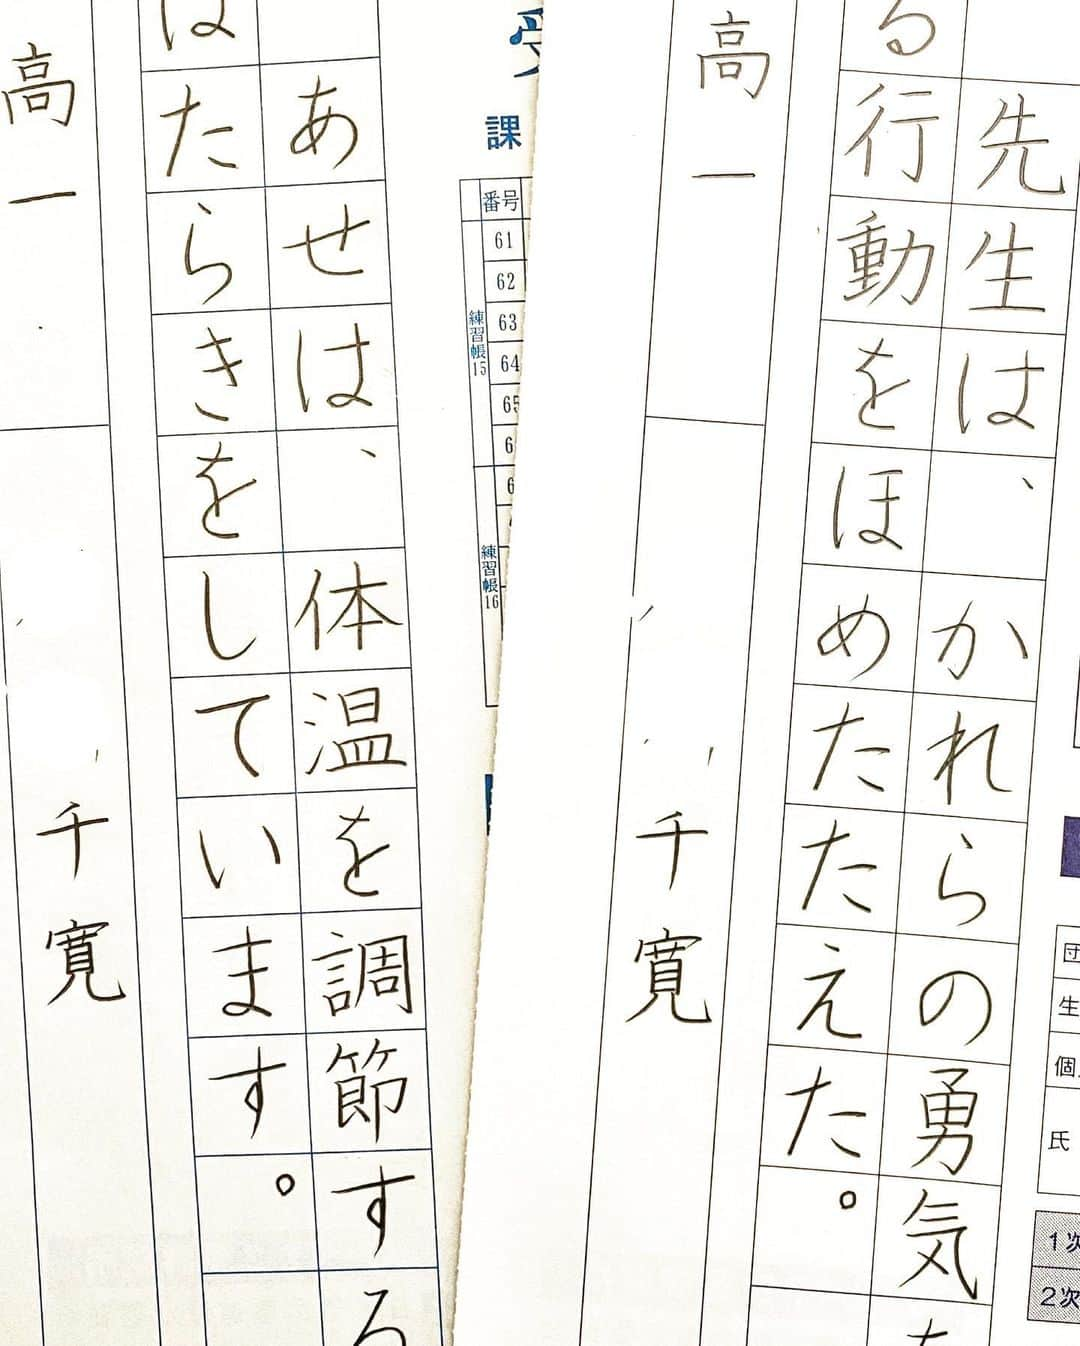 先生は、かれらの勇気
る行動をほめたたえた。
高一
千寛
あせは、体温を調節する
はたらきをしています。
高一
千寛
課
番号
61
62
63
64
65
6
6
練習帳15
練習帳16
生
個
氏
1次
2次